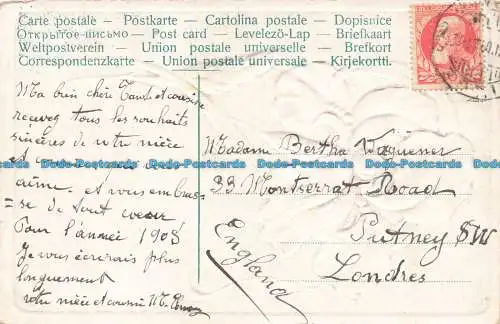 Carte postale – Postkarte – Cartolina postale – Dopisnice
Открытое письмо – Post card – Levelező-Lap – Briefkaart
Weltpostverein – Union postale universelle – Brefkort
Correspondenzkarte – Union postale universale – Kirjekortti.
Ma bien chère Tante et cousine
recevez tous les souhaits
sincères de votre nièce
et
aime et vous embras-
=se de tout coeur
Pour l'année 1908
Je vous écrirais plus
longuement
votre nièce et cousine M.
Madame Bertha Wagener
33 Montserrat Road
Putney SW
Londres
England
bdc-Postcards